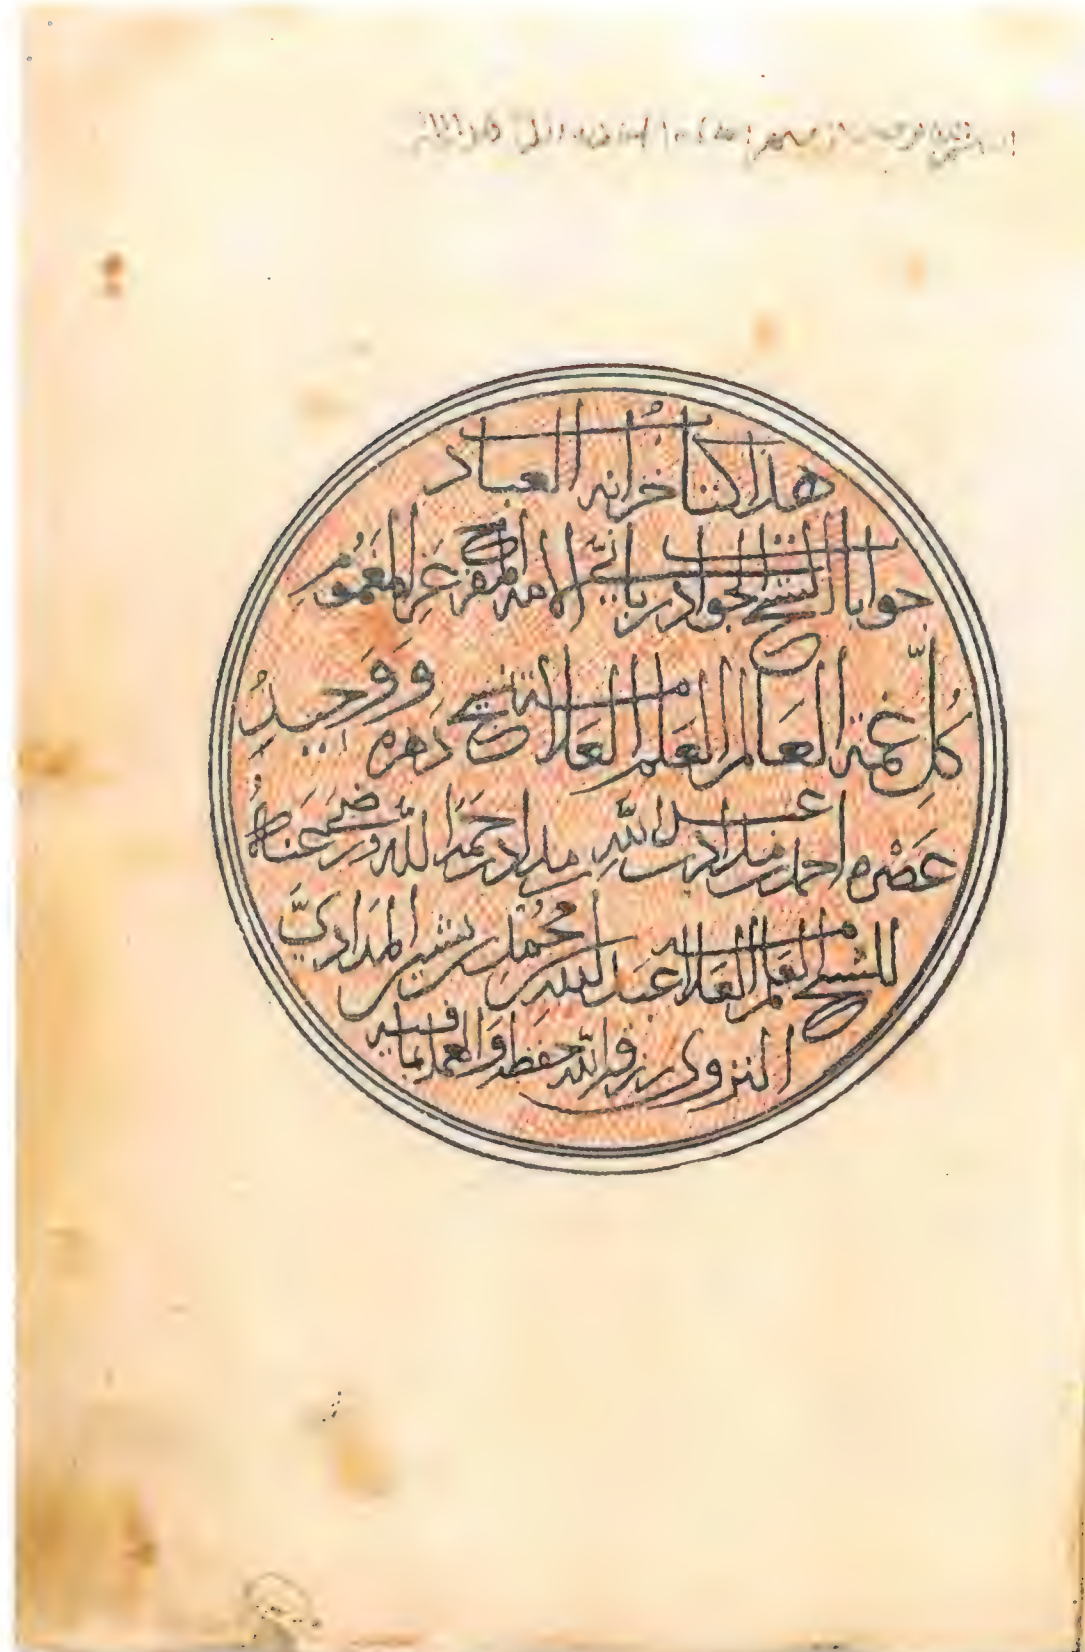 هذا كتاب خزانة العباد
جوابات الشيخ الجواد رباني الأمة المفرج عن المغموم
كُلَّ غمة العالم العلم العلامة شيخ دهره وَوَحيدُ
عَصْره أحمد بن مداد بن عبد الله بن مداد رحمه الله ورضيَ عَنهُ
للشيخ العلم العلامة عبد الله بن محمد بن بشير المدادي
النزوي رزقه الله حفظه والعمل بما فيه